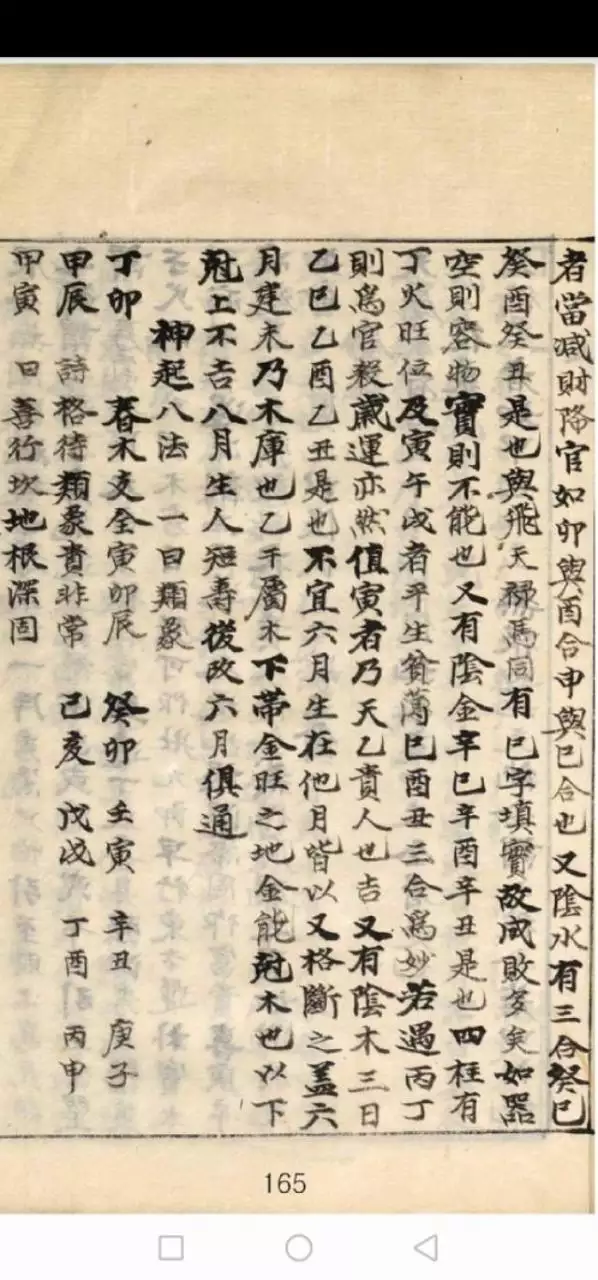 者當减財降官如卯與酉合申與巳合也又陰水有三合癸巳
癸酉癸丑是也與飛天祿馬同有巳字填實故成敗多矣如器
空則容物實則不能也又有陰金辛巳辛酉辛丑是也四柱有
丁火旺位及寅午戌者平生貧薄巳酉丑三合爲妙若遇丙丁
則爲官殺歲運亦然值寅者乃天乙貴人也吉又有陰木三日
乙巳乙酉乙丑是也不宜六月生在他月皆以又格斷之蓋六
月建未乃木庫也乙干屬木下帶金旺之地金能尅木也以下
尅上不吉八月生人短壽後改六月俱通
神起八法 一曰類象
丁卯 春木支全寅卯辰 癸卯 壬寅 辛丑 庚子
甲辰 詩 格待類象貴非常 己亥 戊戌 丁酉 丙申
甲寅 曰 喜行坎地根深固
165